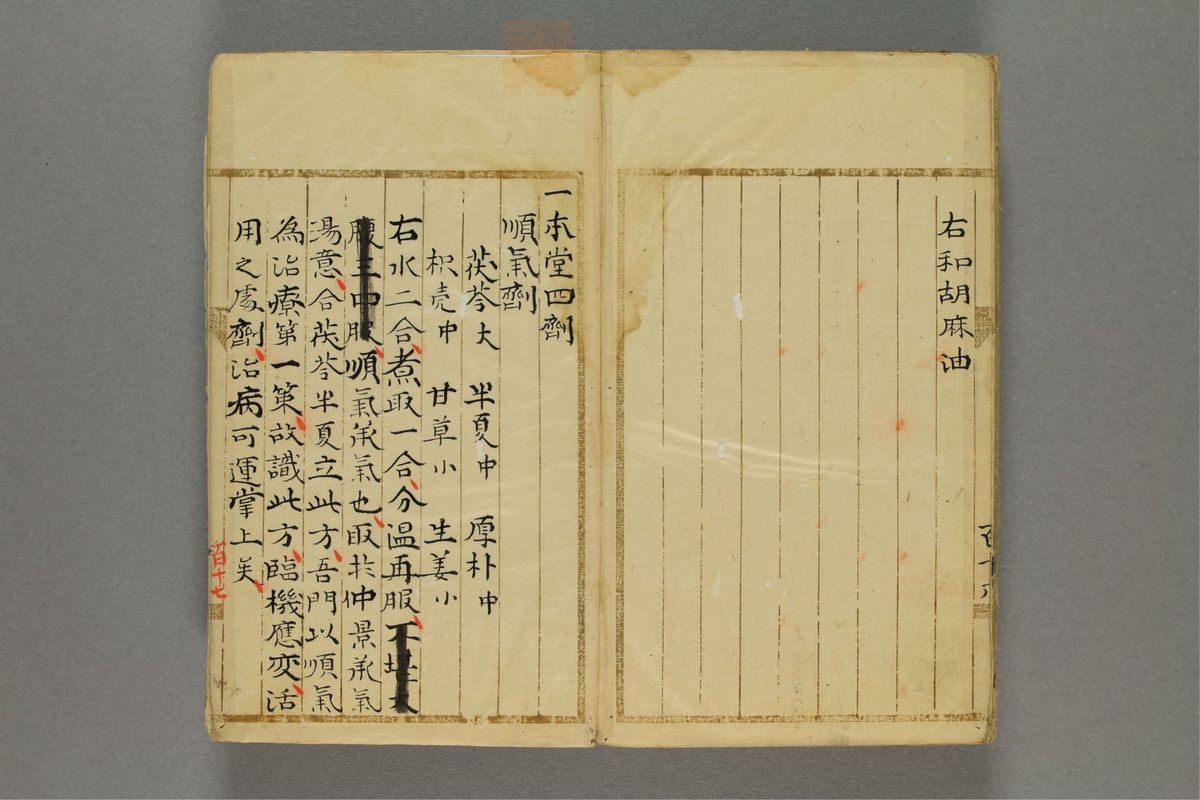 右和胡麻油
百十六
一本堂四劑
順氣劑
茯苓大 半夏中 厚朴中
枳壳中 甘草小 生姜小
右水二合、煮取一合、分温再服、不堪大
腹三中服、順氣承氣也、取於仲景承氣
湯意、合茯苓半夏立此方、吾門以順氣
為治療第一策、故識此方、臨機應変、活
用之處劑、治病可運掌上矣、
百十七